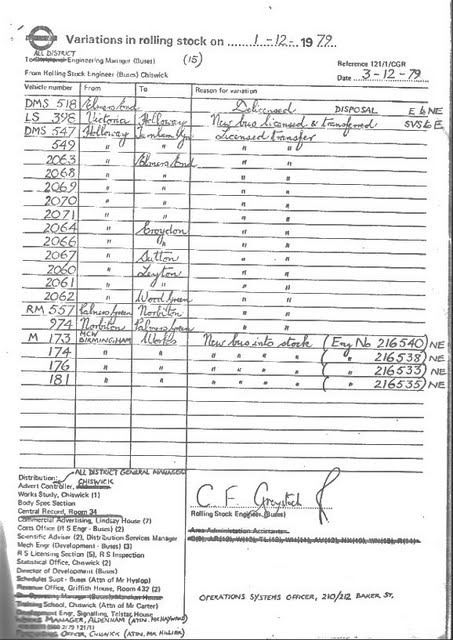 Variations in rolling stock on 1-12-1979
ALL DISTRICT
To Divisional Engineering Manager (Buses) (15)
Reference 121/1/CGR
From Rolling Stock Engineer (Buses) Chiswick
Date 3-12-79
Vehicle number From To Reason for variation
DMS 518 Elmers End Delicensed DISPOSAL E to NE
LS 398 Victoria Holloway New bus licensed & transferred SVS to E
DMS 547 Holloway Licensed transfer
549 " " " "
2063 " Elmers End " "
2068 " " " "
2069 " " " "
2070 " " " "
2071 " " " "
2064 " Croydon " "
2066 " " " "
2067 " Sutton " "
2060 " Leyton " "
2061 " " " "
2062 " Wood Green " "
RM 557 Palmers Green Norbiton " "
974 Norbiton Palmers Green " "
M 173 MCW BIRMINGHAM Works New bus into stock (Eng No 216540) NE
174 " " " " " " ( " 216538) NE
176 " " " " " " ( " 216533) NE
181 " " " " " " ( " 216535) NE
Distribution: ALL DISTRICT GENERAL MANAGER
Advert Controller, CHISWICK
Works Study, Chiswick (1)
Body Spec Section
Central Record, Room 34
Commercial Advertising, Lindsay House (7)
Costs Office (R S Engr - Buses) (2)
Scientific Adviser (2), Distribution Services Manager
Mech Engr (Development - Buses) (3)
R S Licensing Section (5), R S Inspection
Statistical Office, Chiswick (2)
Director of Development (Buses)
Schedules Supt - Buses (Attn of Mr Hyslop)
Revenue Office, Griffith House, Room 432 (2)
Training School, Chiswick (Attn of Mr Carter)
Development Engr, Signalling, Telstar House
WORKS MANAGER, ALDENHAM (ATTN. MR HAYWARD)
OFFICER, CHISWICK (ATTN. MR HILLIER)
C F Greystock
Rolling Stock Engineer (Buses)
Area Administration Assistants
OPERATIONS SYSTEMS OFFICER, 210/212 BAKER ST.